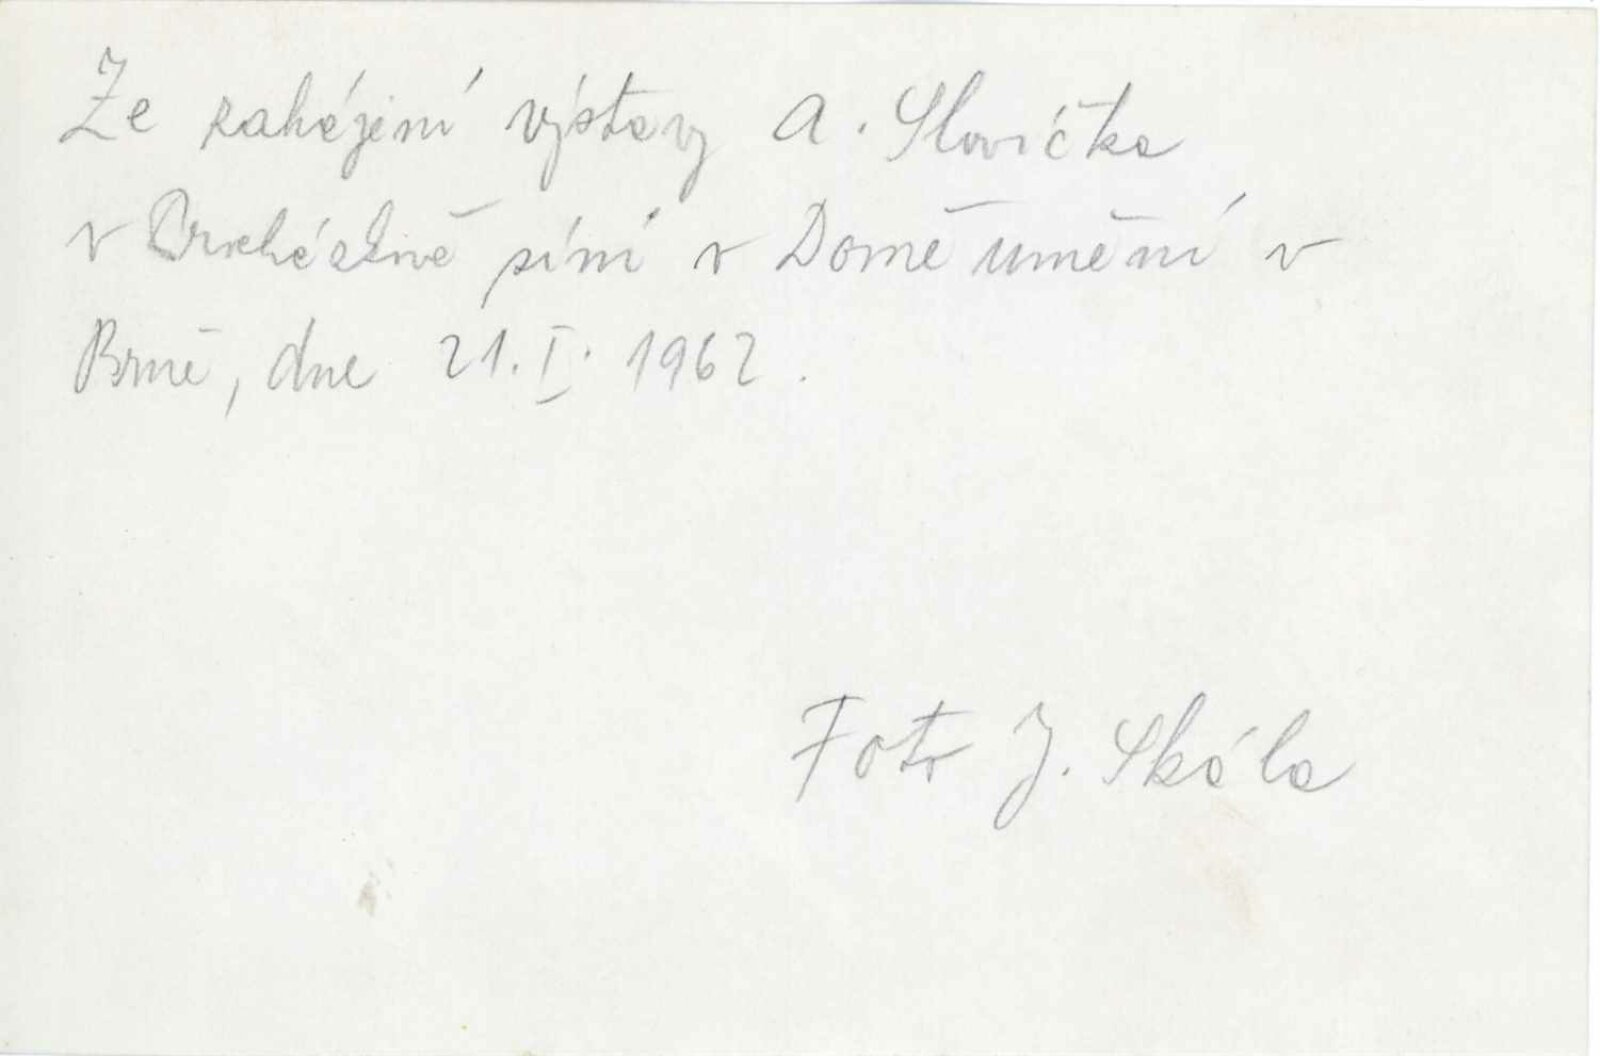 Ze zahájení výstavy A. Slavíčka
v Procházkově síni v Domě umění v
Brně, dne 21. I. 1962.
Foto J. Skála